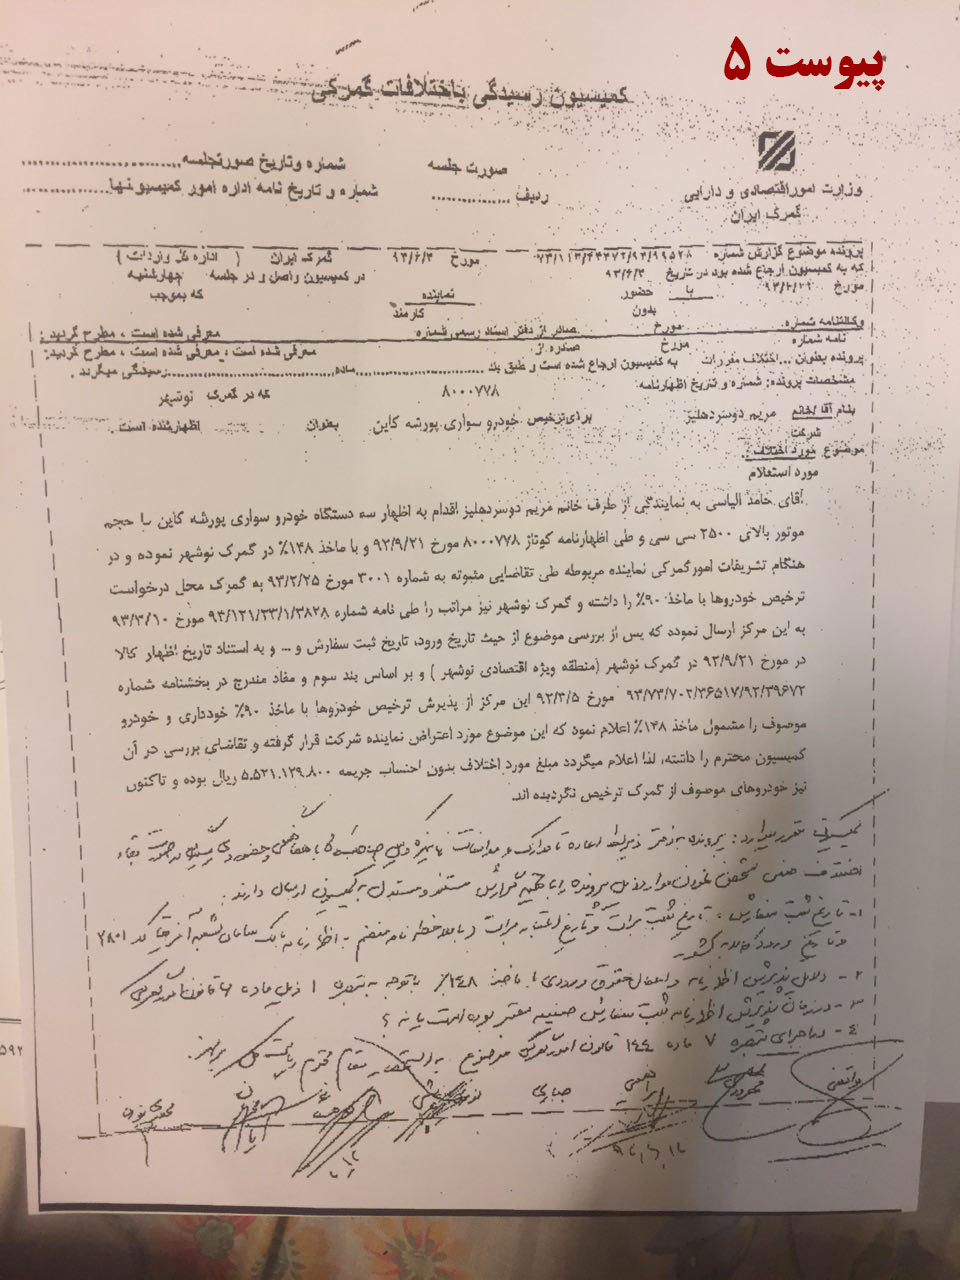 پیوست ۵
کمیسیون رسیدگی باختلافات گمرکی
وزارت اموراقتصادی و دارایی
گمرک ایران
صورت جلسه
ردیف ................
شماره وتاریخ صورتجلسه............................
شماره و تاریخ نامه اداره امور کمیسیونها...............
پرونده موضوع گزارش شماره ۷۳/۱۱۳/۴۴۳۷۲/۹۳/۹۹۵۲۸ مورخ ۹۳/۶/۳ گمرک ایران ( اداره کل واردات )
که به کمیسیون ارجاع شده بود در تاریخ ۹۳/۶/۴ در کمیسیون واصل و در جلسه چهارشنبه
مورخ با حضور نماینده که بموجب
بدون کارمند
وکالتنامه شماره مورخ صادر از دفتر اسناد رسمی شماره معرفی شده است ، مطرح گردید :
نامه شماره مورخ صادره از معرفی شده است ، معرفی شده است ، مطرح گردید:
پرونده بعنوان ...اختلاف مقررات به کمیسیون ارجاع شده است و طبق بند ..............ماده..............رسیدگی میگردد .
مشخصات پرونده: شماره و تاریخ اظهارنامه ۸۰۰۰۷۷۸ که در گمرک نوشهر
بنام آقا/خانم مریم دوسردهلیز برای ترخیص خودرو سواری پورشه کاین بعنوان اظهارشده است .
شرکت
موضوع مورد اختلاف :
مورد استعلام
آقای حامد الیاسی به نمایندگی از طرف خانم مریم دوسردهلیز اقدام به اظهار سه دستگاه خودرو سواری پورشه کاین با حجم
موتور بالای ۲۵۰۰ سی سی و طی اظهارنامه کوتاژ ۸۰۰۰۷۷۸ مورخ ۹۲/۹/۲۱ و با ماخذ ۱۴۸٪ در گمرک نوشهر نموده و در
هنگام تشریفات امورگمرکی نماینده مربوطه طی تقاضایی مثبوته به شماره ۳۰۰۱ مورخ ۹۳/۲/۲۵ به گمرک محل درخواست
ترخیص خودروها با ماخذ ۹۰٪ را داشته و گمرک نوشهر نیز مراتب را طی نامه شماره ۹۳/۱۲۱/۳۳/۱/۳۸۲۸ مورخ ۹۳/۳/۱۰
به این مرکز ارسال نموده که پس از بررسی موضوع از حیث تاریخ ورود، تاریخ ثبت سفارش و ... و به استناد تاریخ اظهار کالا
در مورخ ۹۲/۹/۲۱ در گمرک نوشهر (منطقه ویژه اقتصادی نوشهر ) و بر اساس بند سوم و مفاد مندرج در بخشنامه شماره
۹۳/۷۳/۷۰۲/۳۶۵۱۷/۹۲/۳۹۶۷۲ مورخ ۹۲/۳/۵ این مرکز از پذیرش ترخیص خودروها با ماخذ ۹۰٪ خودداری و خودرو
موصوف را مشمول ماخذ ۱۴۸٪ اعلام نمود که این موضوع مورد اعتراض نماینده شرکت قرار گرفته و تقاضای بررسی در آن
کمیسیون محترم را داشته، لذا اعلام میگردد مبلغ مورد اختلاف بدون احتساب جریمه ۵.۵۲۱.۱۲۹.۸۰۰ ریال بوده و تاکنون
نیز خودروهای موصوف از گمرک ترخیص نگردیده اند.
کمیسیون مقرر میدارد : پرونده به دفتر ذیربط اعاده تا مدارک و مدافعات
اختلاف ضمن مشخص نمودن موارد ذیل پرونده را با تهیه گزارش مستند و مستدل به کمیسیون ارسال دارند .
۱- تاریخ ثبت سفارش ، تاریخ ثبت برات و تاریخ اعتبار برات
و تاریخ ورود کالا به کشور
۲- دلایل پذیرش اظهارنامه و اعمال حقوق ورودی با ماخذ ۱۴۸٪ با توجه به تبصره ۱ ذیل ماده قانون امور گمرکی
۳- در زمان پذیرش اظهارنامه ثبت سفارش ضمیمه معتبر بوده است یا نه ؟
۴- در اجرای تبصره ۷ ماده ۱۴۴ قانون امور گمرکی موضوع به استحضار مقام محترم ریاست کل برسد.
واثقی
محمودی
ابراهیمی
صبایی
۵۹۲